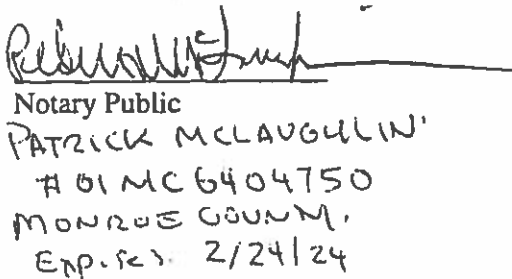 Notary Public
PATRICK MCLAUGHLIN
#01MC6404750
MONROE COUNTY.
Expires 2/24/24